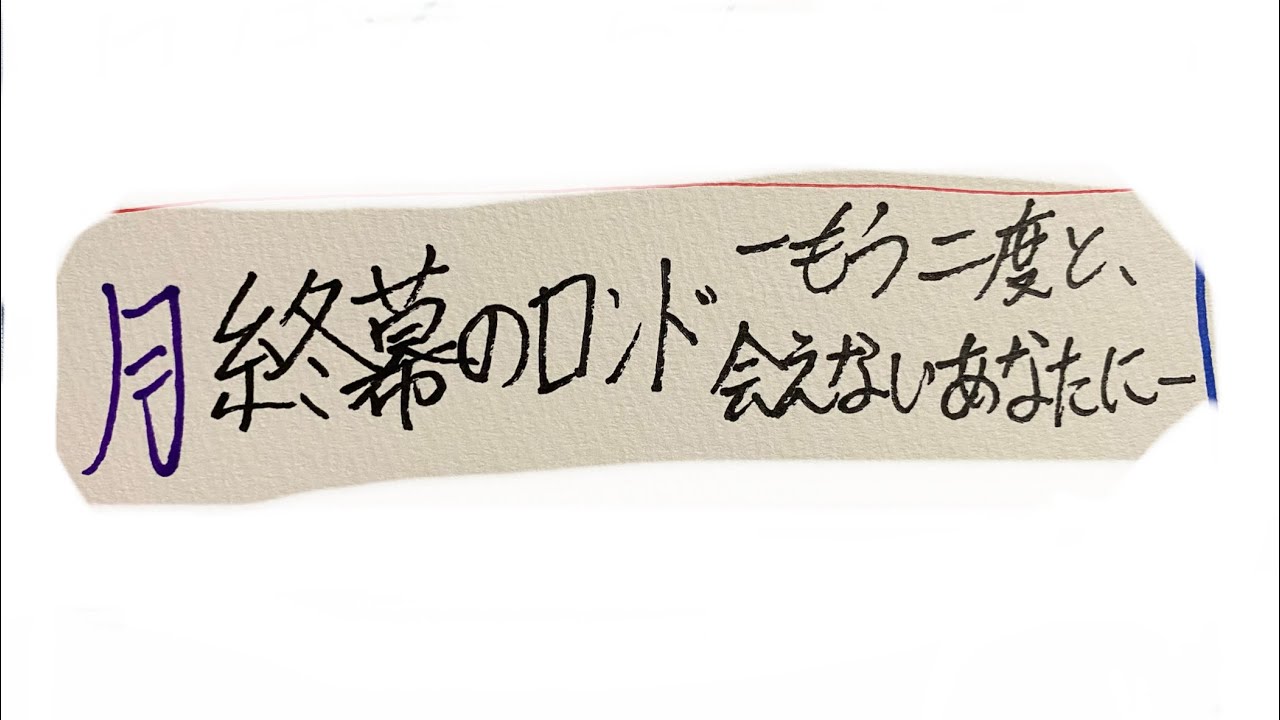 月 終幕のロンド
ーもう二度と、
会えないあなたにー